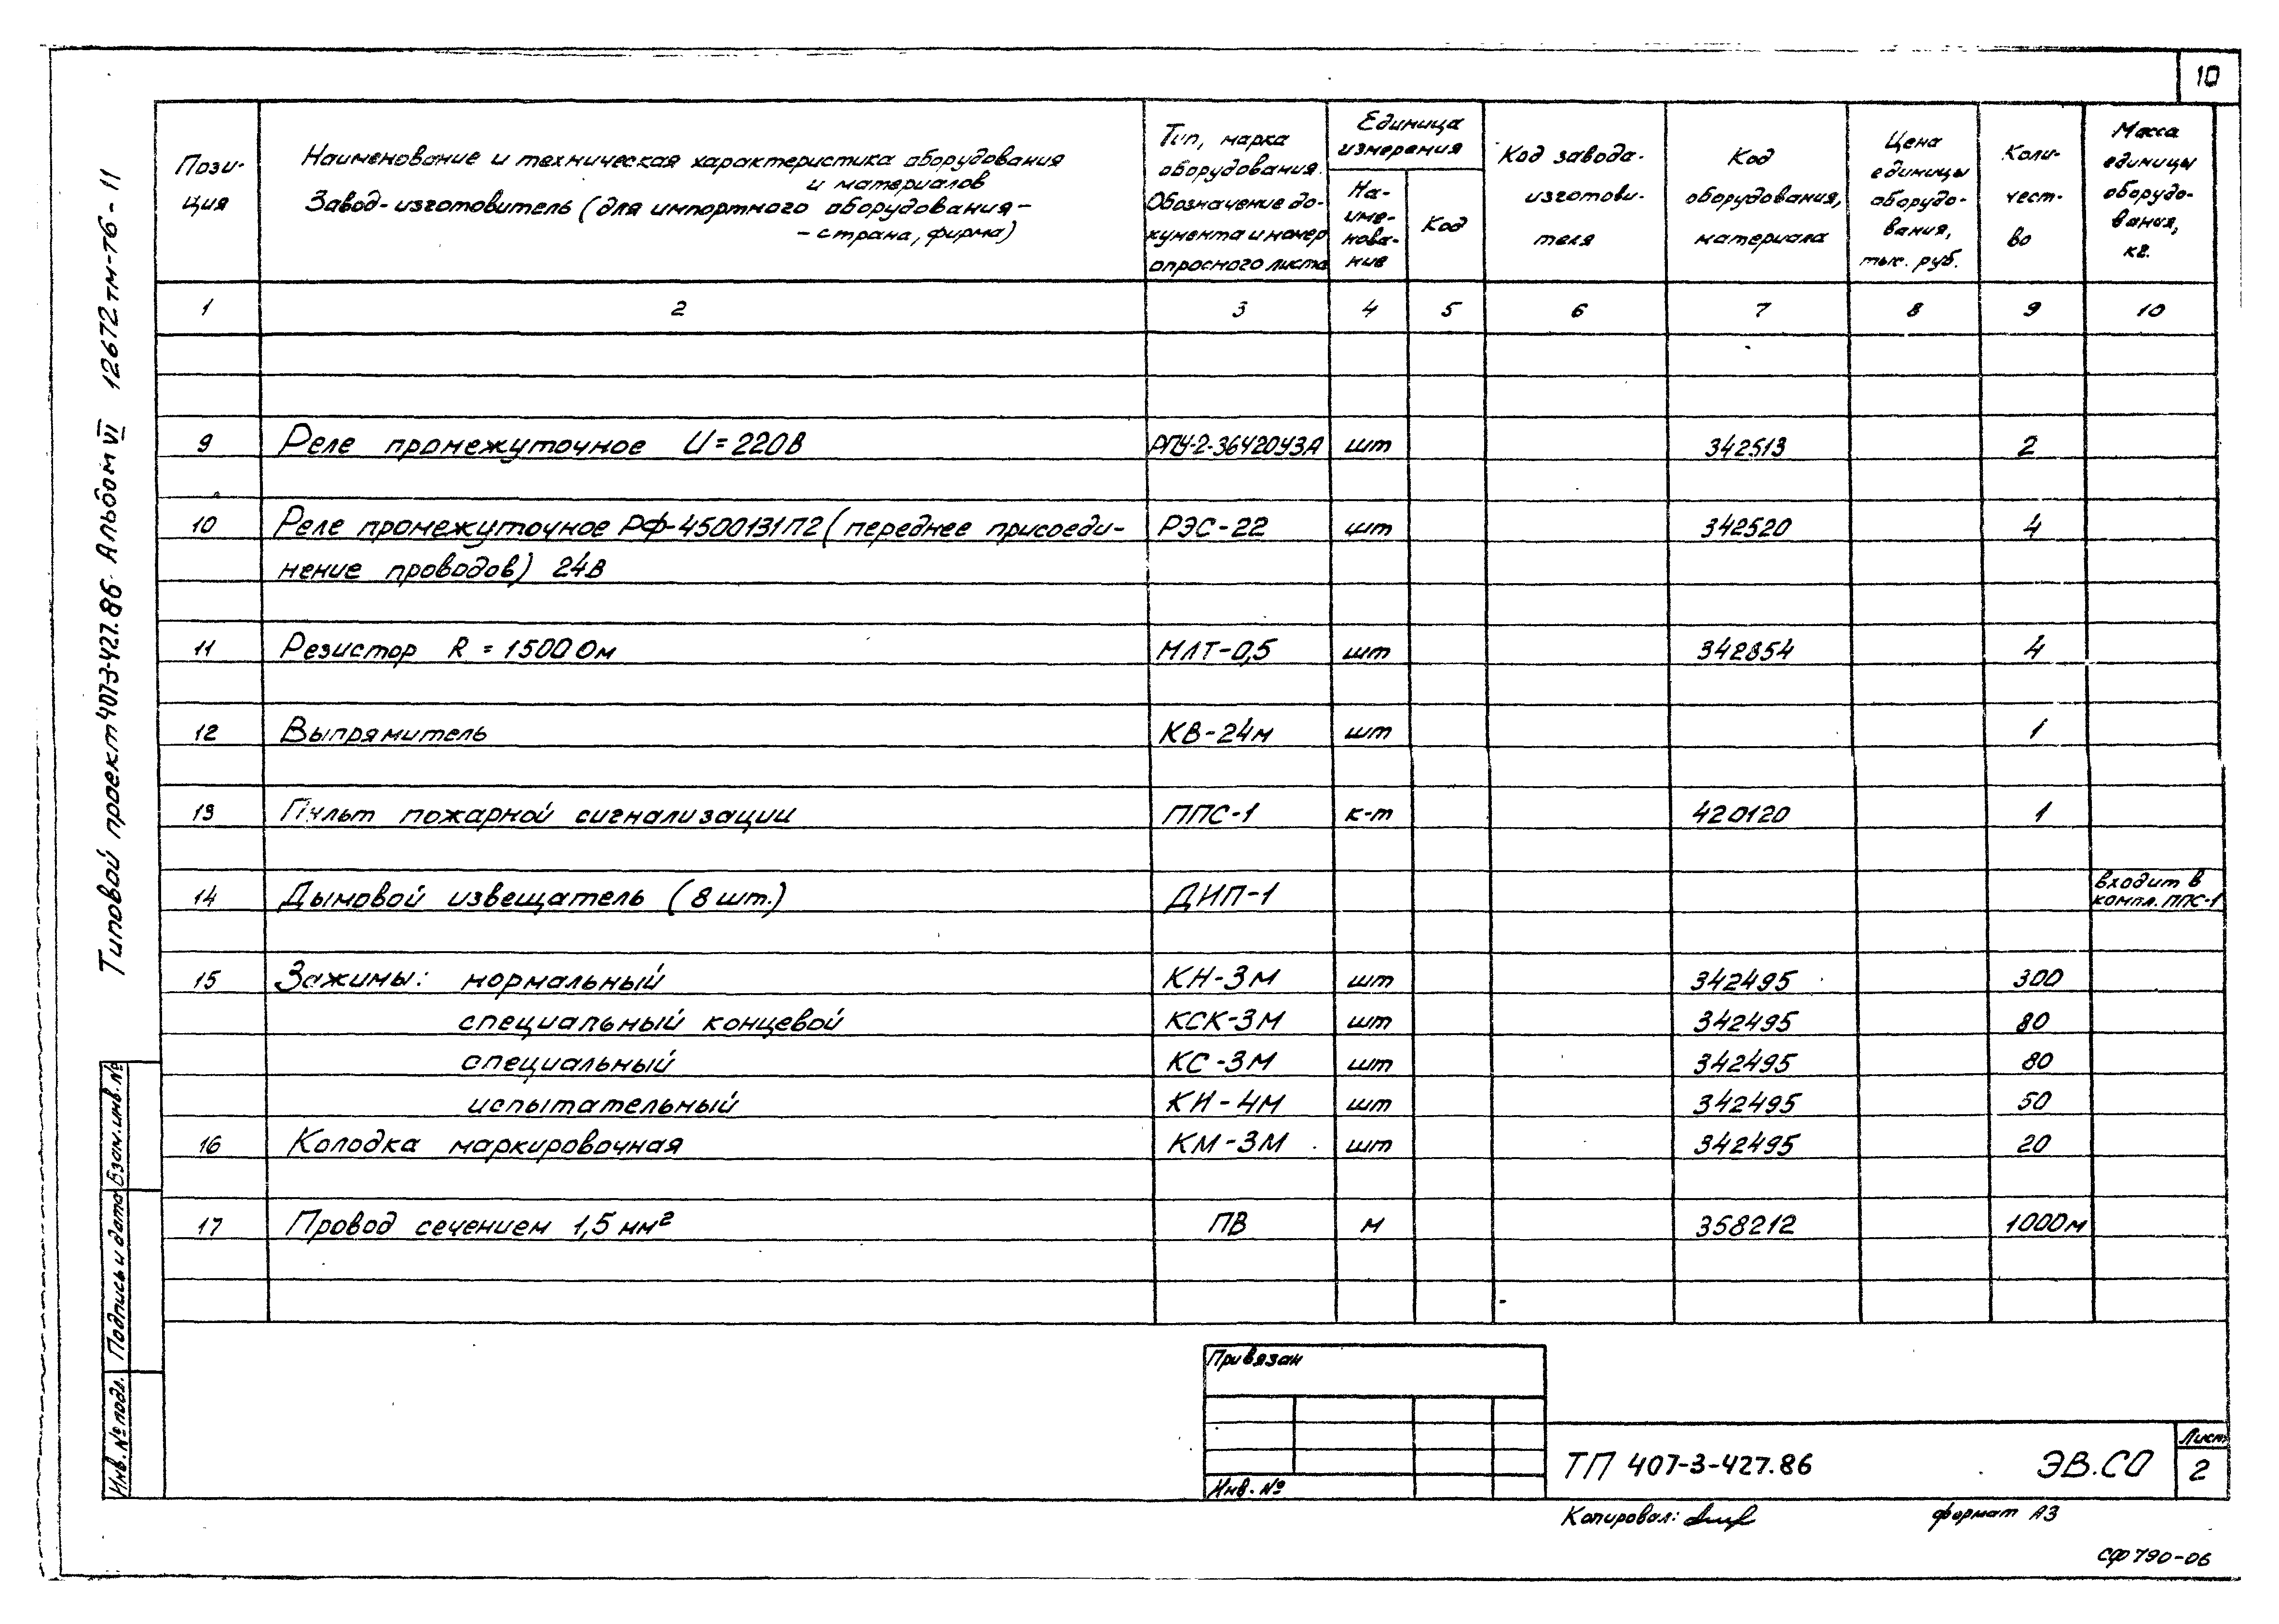 10
Типовой проект 407-3-427.86 Альбом VI 12672тм-т6-11
Пози-
ция
Наименование и техническая характеристика оборудования
и материалов
Завод-изготовитель (для импортного оборудования-
-страна, фирма)
Тип, марка
оборудования.
Обозначение до-
кумента и номер
опросного листа
Единица
измерения
На-
име-
нова-
ние
Код
Код завода-
изготови-
теля
Код
оборудования,
материала
Цена
единицы
оборудо-
вания,
тыс. руб.
Коли-
чест-
во
Масса
единицы
оборудо-
вания,
кг.
1 2 3 4 5 6 7 8 9 10
9 Реле промежуточное U=220В РПУ-2-36420У3А шт 342513 2
10 Реле промежуточное РФ-4500131П2 (переднее присоеди- РЭС-22 шт 342520 4
нение проводов) 24В
11 Резистор R = 1500 Ом МЛТ-0,5 шт 342854 4
12 Выпрямитель КВ-24м шт 1
13 Пульт пожарной сигнализации ППС-1 к-т 420120 1
14 Дымовой извещатель (8 шт.) ДИП-1 входит в
компл. ППС-1
15 Зажимы: нормальный КН-3М шт 342495 300
специальный концевой КСК-3М шт 342495 80
специальный КС-3М шт 342495 80
испытательный КИ-4М шт 342495 50
16 Колодка маркировочная КМ-3М шт 342495 20
17 Провод сечением 1,5 мм² ПВ м 358212 1000м
Взам. инв. №
Подпись и дата
Инв. № подл.
Привязан
Инв. №
ТП 407-3-427.86 ЭВ.СО
Лист
2
Копировал:
формат А3
СФ 790-06